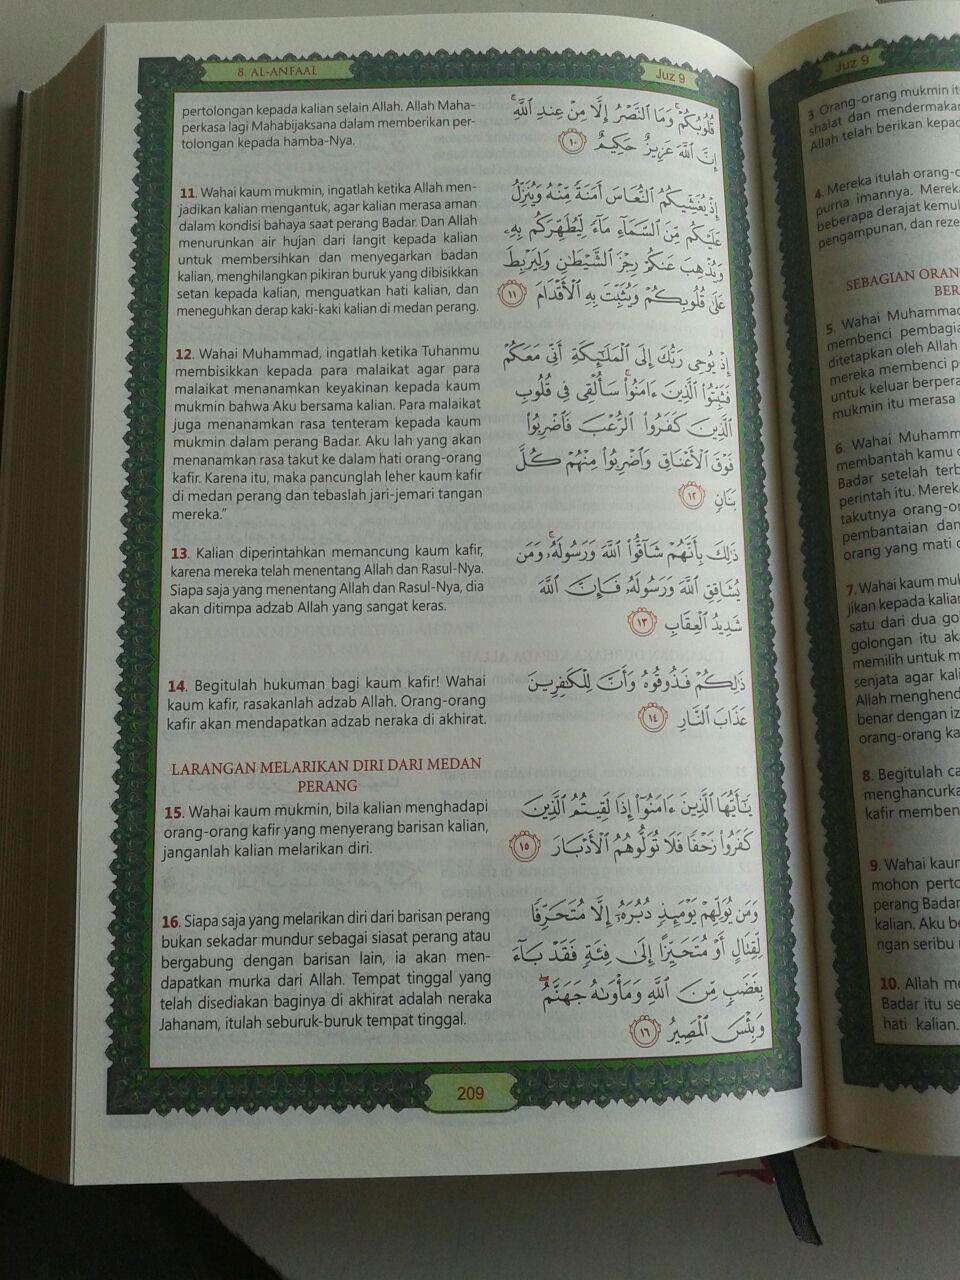 8. AL-ANFAAL
Juz 9
pertolongan kepada kalian selain Allah. Allah Maha-
perkasa lagi Mahabijaksana dalam memberikan per-
tolongan kepada hamba-Nya.
قُلُوبُكُمْ ۚ وَمَا النَّصْرُ إِلَّا مِنْ عِندِ اللَّهِ ۚ
إِنَّ اللَّهَ عَزِيزٌ حَكِيمٌ ١٠
11. Wahai kaum mukmin, ingatlah ketika Allah men-
jadikan kalian mengantuk, agar kalian merasa aman
dalam kondisi bahaya saat perang Badar. Dan Allah
menurunkan air hujan dari langit kepada kalian
untuk membersihkan dan menyegarkan badan
kalian, menghilangkan pikiran buruk yang dibisikkan
setan kepada kalian, menguatkan hati kalian, dan
meneguhkan derap kaki-kaki kalian di medan perang.
إِذْ يُغَشِّيكُمُ النُّعَاسَ أَمَنَةً مِّنْهُ وَيُنَزِّلُ
عَلَيْكُم مِّنَ السَّمَاءِ مَاءً لِّيُطَهِّرَكُم بِهِ
وَيُذْهِبَ عَنكُمْ رِجْزَ الشَّيْطَانِ وَلِيَرْبِطَ
عَلَىٰ قُلُوبِكُمْ وَيُثَبِّتَ بِهِ الْأَقْدَامَ ١١
12. Wahai Muhammad, ingatlah ketika Tuhanmu
membisikkan kepada para malaikat agar para
malaikat menanamkan keyakinan kepada kaum
mukmin bahwa Aku bersama kalian. Para malaikat
juga menanamkan rasa tenteram kepada kaum
mukmin dalam perang Badar. Aku lah yang akan
menanamkan rasa takut ke dalam hati orang-orang
kafir. Karena itu, maka pancunglah leher kaum kafir
di medan perang dan tebaslah jari-jemari tangan
mereka.”
إِذْ يُوحِي رَبُّكَ إِلَى الْمَلَائِكَةِ أَنِّي مَعَكُمْ
فَثَبِّتُوا الَّذِينَ ءَامَنُوا ۚ سَأُلْقِي فِي قُلُوبِ
الَّذِينَ كَفَرُوا الرُّعْبَ فَاضْرِبُوا
فَوْقَ الْأَعْنَاقِ وَاضْرِبُوا مِنْهُمْ كُلَّ
بَنَانٍ ١٢
13. Kalian diperintahkan memancung kaum kafir,
karena mereka telah menentang Allah dan Rasul-Nya.
Siapa saja yang menentang Allah dan Rasul-Nya, dia
akan ditimpa adzab Allah yang sangat keras.
ذَٰلِكَ بِأَنَّهُمْ شَاقُّوا اللَّهَ وَرَسُولَهُ ۚ وَمَن
يُشَاقِقِ اللَّهَ وَرَسُولَهُ فَإِنَّ اللَّهَ
شَدِيدُ الْعِقَابِ ١٣
14. Begitulah hukuman bagi kaum kafir! Wahai
kaum kafir, rasakanlah adzab Allah. Orang-orang
kafir akan mendapatkan adzab neraka di akhirat.
ذَٰلِكُمْ فَذُوقُوهُ وَأَنَّ لِلْكَافِرِينَ
عَذَابَ النَّارِ ١٤
LARANGAN MELARIKAN DIRI DARI MEDAN
PERANG
15. Wahai kaum mukmin, bila kalian menghadapi
orang-orang kafir yang menyerang barisan kalian,
janganlah kalian melarikan diri.
يَا أَيُّهَا الَّذِينَ ءَامَنُوا إِذَا لَقِيتُمُ الَّذِينَ
كَفَرُوا زَحْفًا فَلَا تُوَلُّوهُمُ الْأَدْبَارَ ١٥
16. Siapa saja yang melarikan diri dari barisan perang
bukan sekadar mundur sebagai siasat perang atau
bergabung dengan barisan lain, ia akan men-
dapatkan murka dari Allah. Tempat tinggal yang
telah disediakan baginya di akhirat adalah neraka
Jahanam, itulah seburuk-buruk tempat tinggal.
وَمَن يُوَلِّهِمْ يَوْمَئِذٍ دُبُرَهُ إِلَّا مُتَحَرِّفًا
لِّقِتَالٍ أَوْ مُتَحَيِّزًا إِلَىٰ فِئَةٍ فَقَدْ بَاءَ
بِغَضَبٍ مِّنَ اللَّهِ وَمَأْوَاهُ جَهَنَّمُ ۖ
وَبِئْسَ الْمَصِيرُ ١٦
209
Juz 9
3 Orang-orang mukmin it
shalat dan mendermakan
Allah telah berikan kepad
4. Mereka itulah orang-o
purna imannya. Mereka
beberapa derajat kemul
pengampunan, dan reze
SEBAGIAN ORAN
BER
5. Wahai Muhammad
membenci pembagia
ditetapkan oleh Allah
mereka membenci pe
untuk keluar berpera
mukmin itu merasa
6. Wahai Muhamm
membantah kamu d
Badar setelah terb
perintah itu. Mereka
takutnya orang-or
pembantaian dan
orang yang mati d
7. Wahai kaum muk
jikan kepada kalian
satu dari dua go
golongan itu aka
memilih untuk m
senjata agar kali
Allah menghend
benar dengan iz
orang-orang ka
8. Begitulah ca
menghancurka
kafir memben
9. Wahai kaum
mohon perto
perang Badar
kalian. Aku be
ngan seribu m
10. Allah me
Badar itu se
hati kalian.